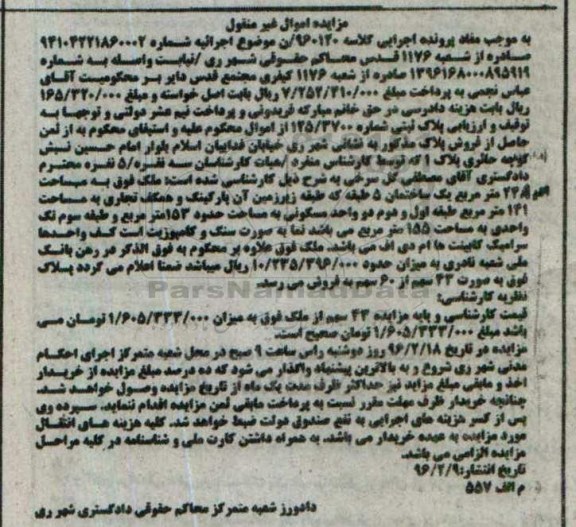 مزایده اموال غیر منقول
به موجب مفاد پرونده اجرایی کلاسه ۹۶۰۱۲۰/ن موضوع اجرائیه شماره ۹۴۱۰۴۲۲۱۸۶۰۰۰۲
صادره از شعبه ۱۱۷۶ قدس محاکم حقوقی شهر ری /نیابت واصله به شماره
۱۳۹۶۱۶۸۰۰۰۸۹۵۹۱۹ صادره از شعبه ۱۱۷۶ کیفری مجتمع قدس دایر بر محکومیت آقای
عباس نجمی به پرداخت مبلغ ۷/۲۵۲/۴۱۰/۰۰۰ ریال بابت اصل خواسته و مبلغ ۱۶۵/۳۲۰/۰۰۰
ریال بابت هزینه دادرسی در حق خانم مبارکه فریدونی و پرداخت نیم عشر دولتی و توجها به
توقیف و ارزیابی پلاک ثبتی شماره ۱۲۵/۳۷۰۰ از اموال محکوم علیه و استیفای محکوم به از ثمن
حاصل از فروش پلاک مذکور به نشانی شهر ری خیابان فداییان اسلام بلوار امام حسین نبش
کوچه حائری پلاک ۱ که توسط کارشناس منفرد /هیات کارشناسان سه نفره/۵ نفره محترم
دادگستری آقای مصطفی گل سرخی به شرح ذیل کارشناسی شده است: ملک فوق به مساحت
۲۴۸ متر مربع یک ساختمان ۵ طبقه که طبقه زیرزمین آن پارکینگ و همکف تجاری به مساحت
۱۴۱ متر مربع طبقه اول و دوم دو واحد مسکونی به مساحت حدود ۱۵۳متر مربع و طبقه سوم تک
واحدی به مساحت ۱۵۵ متر مربع می باشد نما به صورت سنگ و کامپوزیت است کف واحدها
سرامیک کابینت ها ام دی اف می باشد. ملک فوق علاوه بر محکوم به فوق الذکر در رهن بانک
ملی شعبه نادری به میزان حدود ۱۰/۲۳۵/۳۹۶/۰۰۰ ریال میباشد ضمنا اعلام می گردد پلاک
فوق به صورت ۴۳ سهم از ۶۰ سهم به فروش می رسد.
ParsNamadData
نظریه کارشناسی:
قیمت کارشناسی و پایه مزایده ۴۳ سهم از ملک فوق به میزان ۱/۶۰۵/۳۳۳/۰۰۰ تومان می
باشد مبلغ ۱/۶۰۵/۳۳۳/۰۰۰ تومان صحیح است.
مزایده در تاریخ ۹۶/۲/۱۸ روز دوشنبه راس ساعت ۹ صبح در محل شعبه متمرکز اجرای احکام
مدنی شهر ری شروع و به بالاترین پیشنهاد واگذار می شود که ده درصد مبلغ مزایده از خریدار
اخذ و مابقی مبلغ مزاید نیز حداکثر ظرف مدت یک ماه از تاریخ مزایده وصول خواهد شد.
چنانچه خریدار ظرف مهلت مقرر نسبت به پرداخت مابقی ثمن مزایده اقدام ننماید. سپرده وی
پس از کسر هزینه های اجرایی به نفع صندوق دولت ضبط خواهد شد. کلیه هزینه های انتقال
مورد مزایده به عهده خریدار می باشد. به همراه داشتن کارت ملی و شناسنامه در کلیه مراحل
مزایده الزامی می باشد.
تاریخ انتشار:۹۶/۲/۹
م الف ۵۵۷
دادورز شعبه متمرکز محاکم حقوقی دادگستری شهر ری